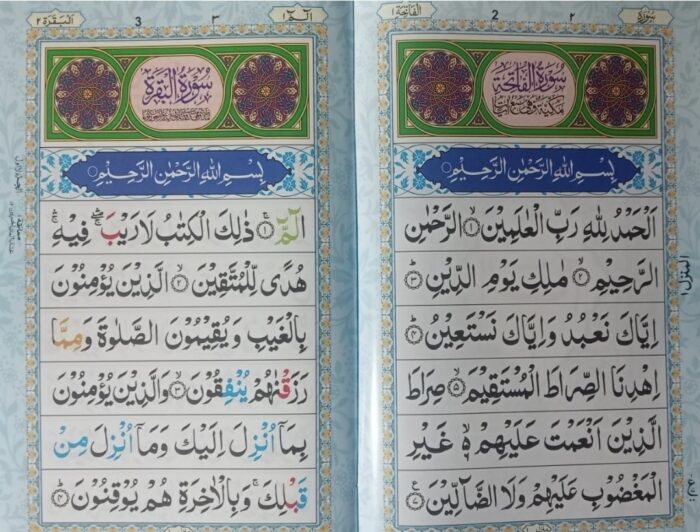 سورة
٢
2
الفاتحة ١
سُوْرَةُ الْفَاتِحَةِ
بِسْمِ اللهِ الرَّحْمٰنِ الرَّحِيْمِ
اَلْحَمْدُ لِلّٰهِ رَبِّ الْعٰلَمِيْنَ ۝١ الرَّحْمٰنِ
الرَّحِيْمِ ۝٢ مٰلِكِ يَوْمِ الدِّيْنِ ۝٣
اِيَّاكَ نَعْبُدُ وَاِيَّاكَ نَسْتَعِيْنُ ۝٤
اِهْدِنَا الصِّرَاطَ الْمُسْتَقِيْمَ ۝٥ صِرَاطَ
الَّذِيْنَ اَنْعَمْتَ عَلَيْهِمْ ۝٦ غَيْرِ
الْمَغْضُوْبِ عَلَيْهِمْ وَلَا الضَّآلِّيْنَ ۝٧
المنزل
الٓمّٓ ١
٣
3
البقرة ٢
سُوْرَةُ الْبَقَرَةِ
بِسْمِ اللهِ الرَّحْمٰنِ الرَّحِيْمِ
الٓمّٓ ۝١ ذٰلِكَ الْكِتٰبُ لَا رَيْبَ فِيْهِ
هُدًى لِّلْمُتَّقِيْنَ ۝٢ الَّذِيْنَ يُؤْمِنُوْنَ
بِالْغَيْبِ وَيُقِيْمُوْنَ الصَّلٰوةَ وَمِمَّا
رَزَقْنٰهُمْ يُنْفِقُوْنَ ۝٣ وَالَّذِيْنَ يُؤْمِنُوْنَ
بِمَآ اُنْزِلَ اِلَيْكَ وَمَآ اُنْزِلَ مِنْ
قَبْلِكَ وَبِالْاٰخِرَةِ هُمْ يُوْقِنُوْنَ ۝٤